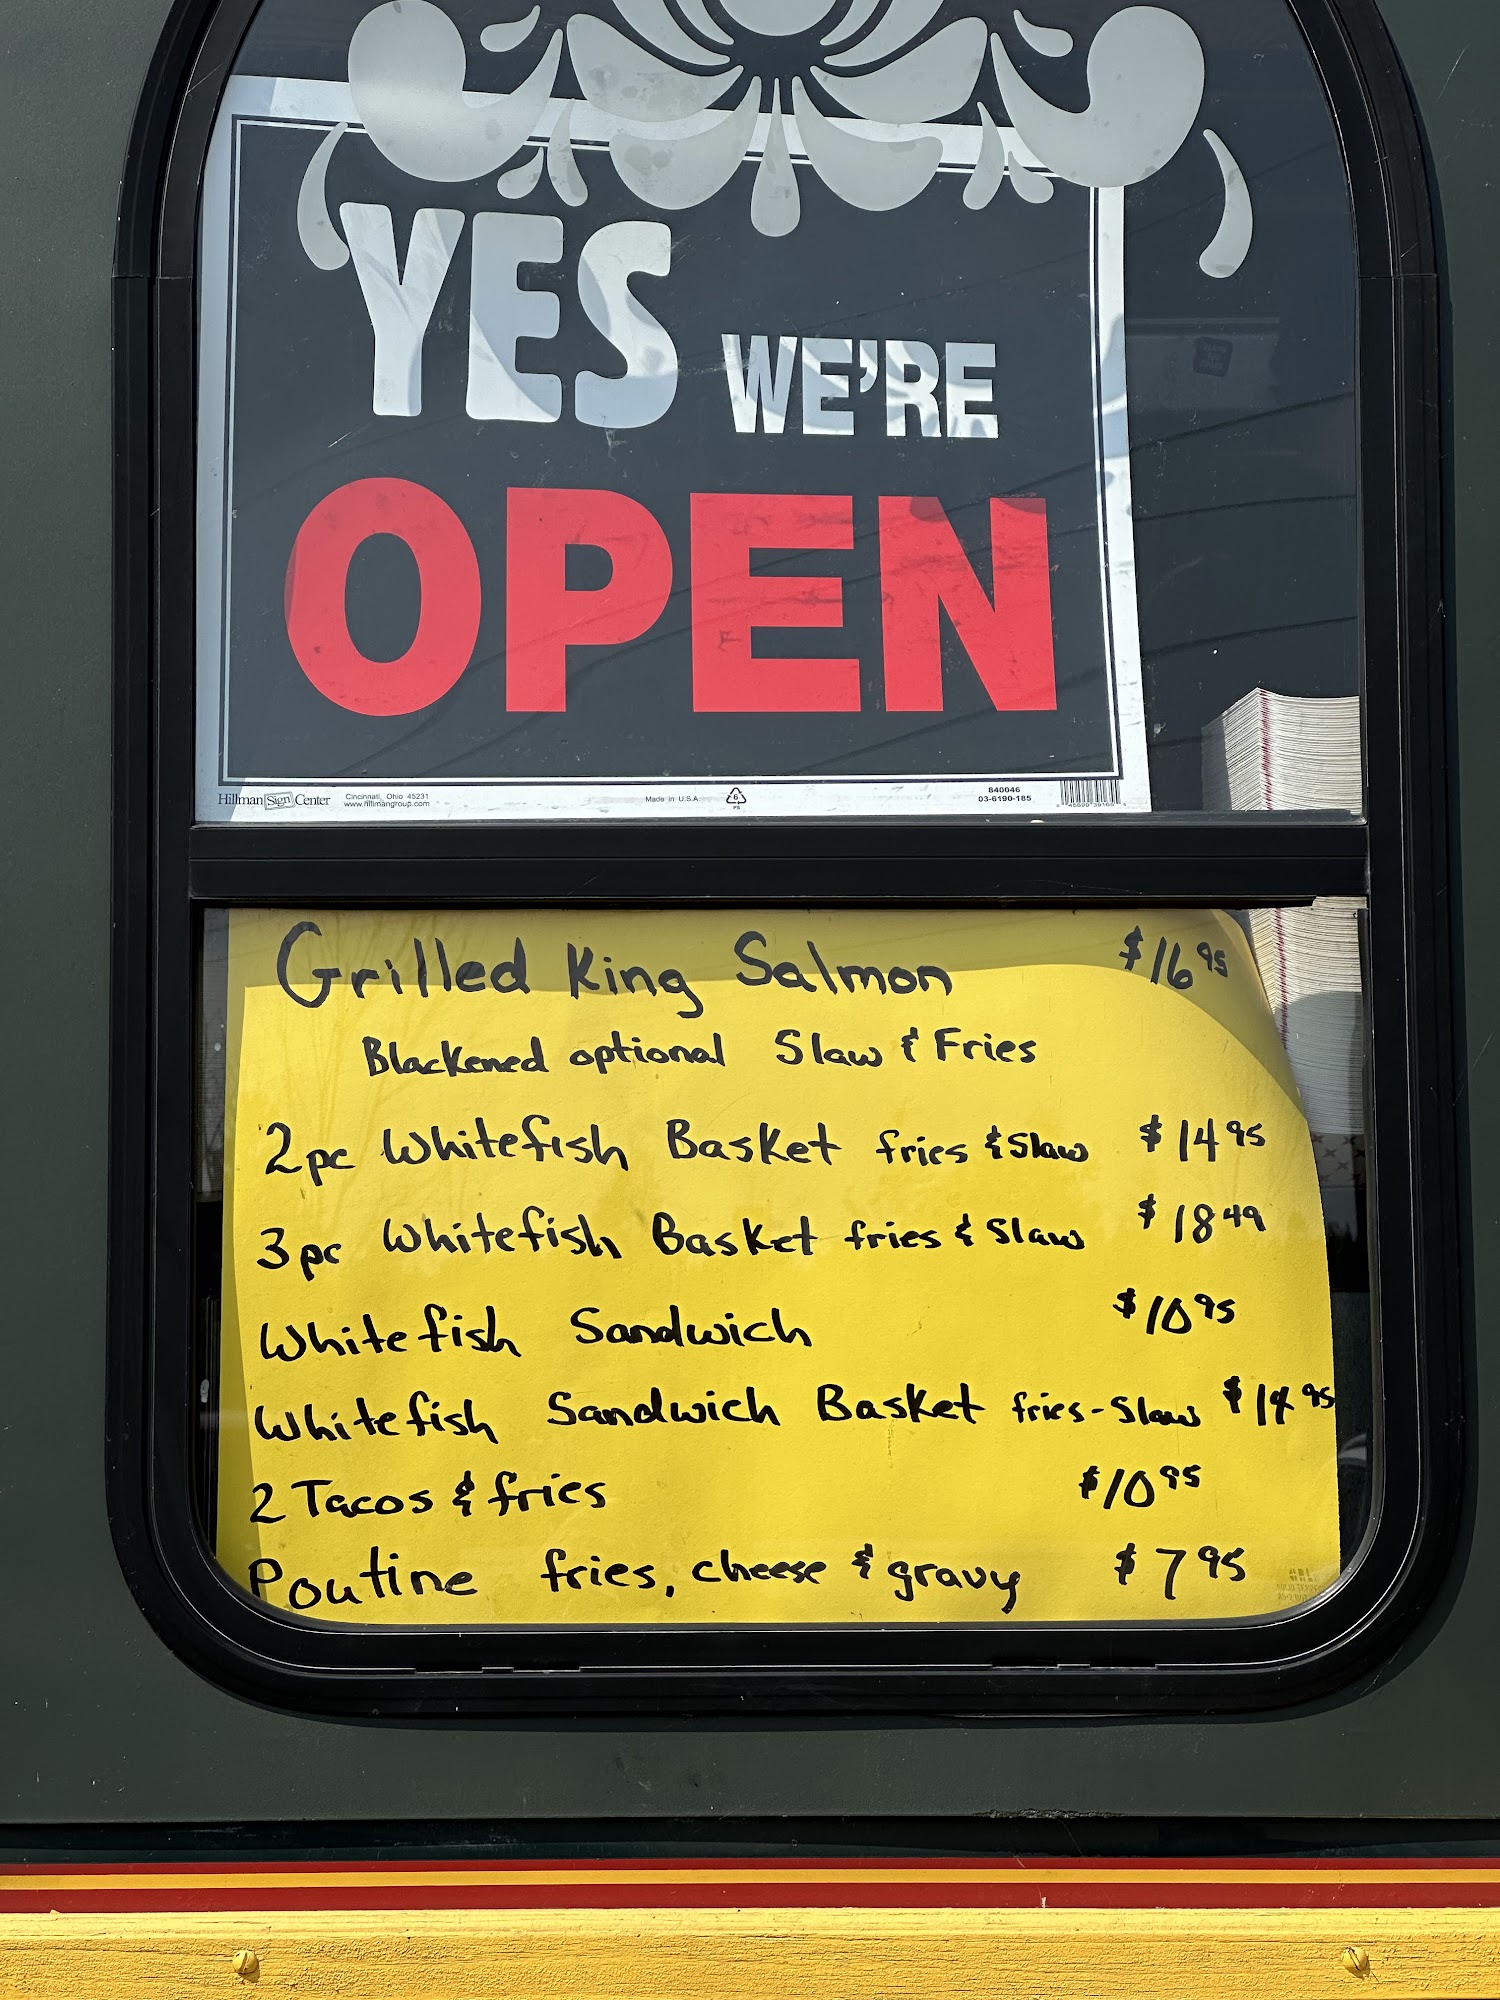 YES WE'RE
OPEN
Hillman Sign Center
Cincinnati, Ohio 45231
www.hillmangroup.com
Made in U.S.A.
6
PS
840046
03-6190-185
Grilled King Salmon $16.95
Blackened optional Slaw & Fries
2pc Whitefish Basket fries & Slaw $14.95
3pc Whitefish Basket fries & Slaw $18.49
Whitefish Sandwich $10.95
Whitefish Sandwich Basket fries-Slaw $14.95
2 Tacos & fries $10.95
Poutine fries, cheese & gravy $7.95